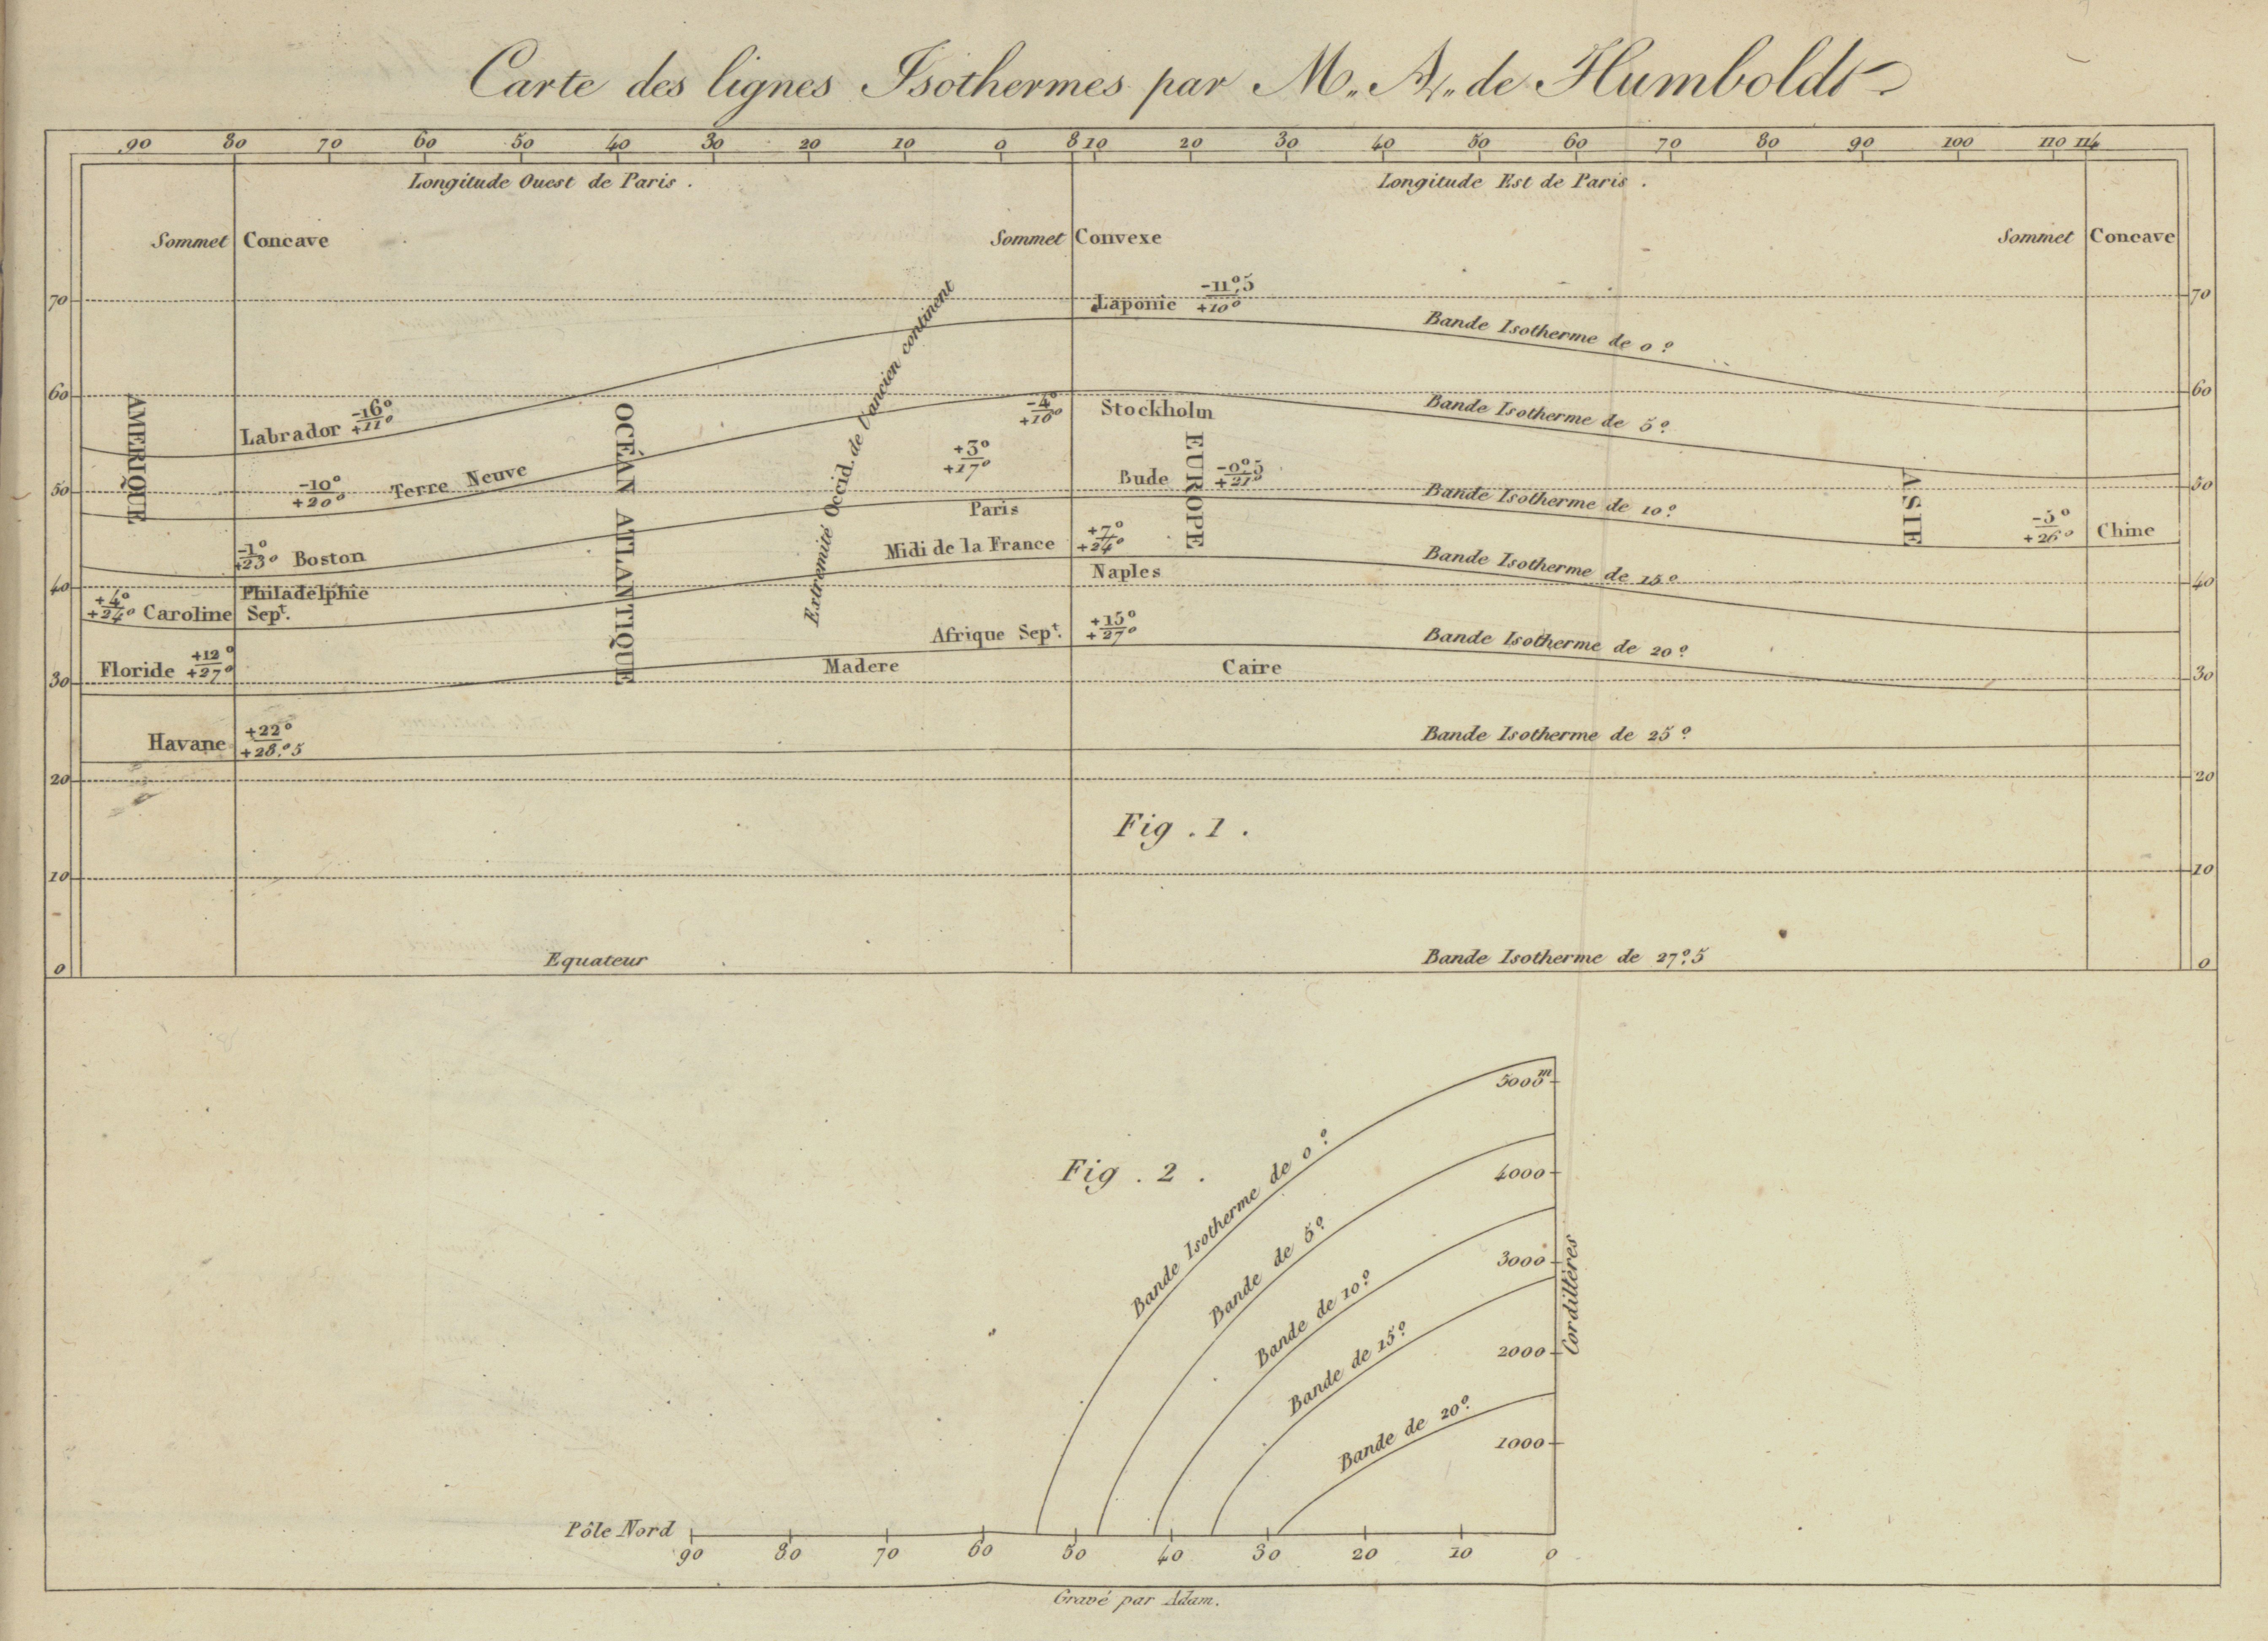 Carte des lignes Isothermes par M. A. de Humboldt
90 80 70 60 50 40 30 20 10 0 8 10 20 30 40 50 60 70 80 90 100 110 114
Longitude Ouest de Paris .
Longitude Est de Paris .
Sommet Concave
Sommet Convexe
Sommet Concave
70
Laponie -11°,5 +10°
70
Bande Isotherme de 0°
60
60
AMERIQUE
OCÉAN ATLANTIQUE
Extremité Occid. de l'ancien continent
EUROPE
ASIE
Labrador -16° +11°
-4° +16°
Stockholm
Bande Isotherme de 5°
+3° +17°
50
-10° +20°
Terre Neuve
Bude -0°,5 +21°
50
Paris
Bande Isotherme de 10°
-1° +23° Boston
Midi de la France
+7° +24°
-5° +26° Chine
Naples
Bande Isotherme de 15°
40
Philadelphie
40
+4° +24° Caroline Sept.
Afrique Sept.
+15° +27°
Bande Isotherme de 20°
Floride +12° +27°
Madere
Caire
30
30
Havane +22° +28.°5
Bande Isotherme de 25°
20
20
Fig . 1 .
10
10
Equateur
Bande Isotherme de 27°,5
0
0
5000m
Fig . 2 .
Bande Isotherme de 0°
4000
Bande de 5°
3000
Cordillères
Bande de 10°
2000
Bande de 15°
Bande de 20°
1000
Pôle Nord
90 80 70 60 50 40 30 20 10 0
Gravé par Adam.